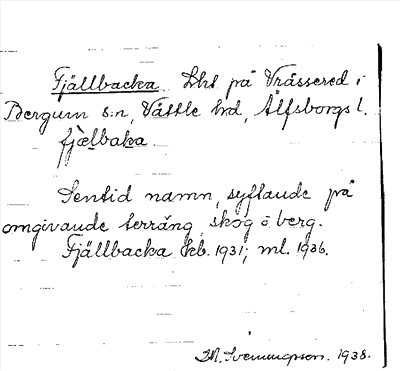 Fjällbacka. Lht på Vrässered i
Bergum s:n, Vättle hd, Älfsborgs l.
fjælbaka.
Sentid namn, syftande på
omgivande terräng, skog o berg.
Fjällbacka kb. 1931; ml. 1936.
M. Svenungsson. 1938.